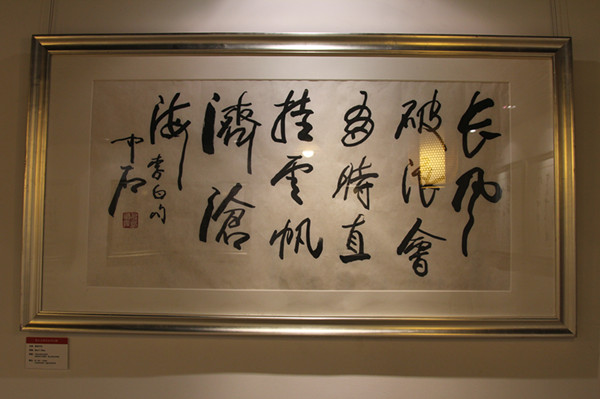 长风
破浪會
有時直
挂雲帆
濟滄
海
李白句
中石